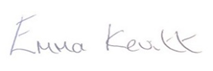 Emma Kevitt